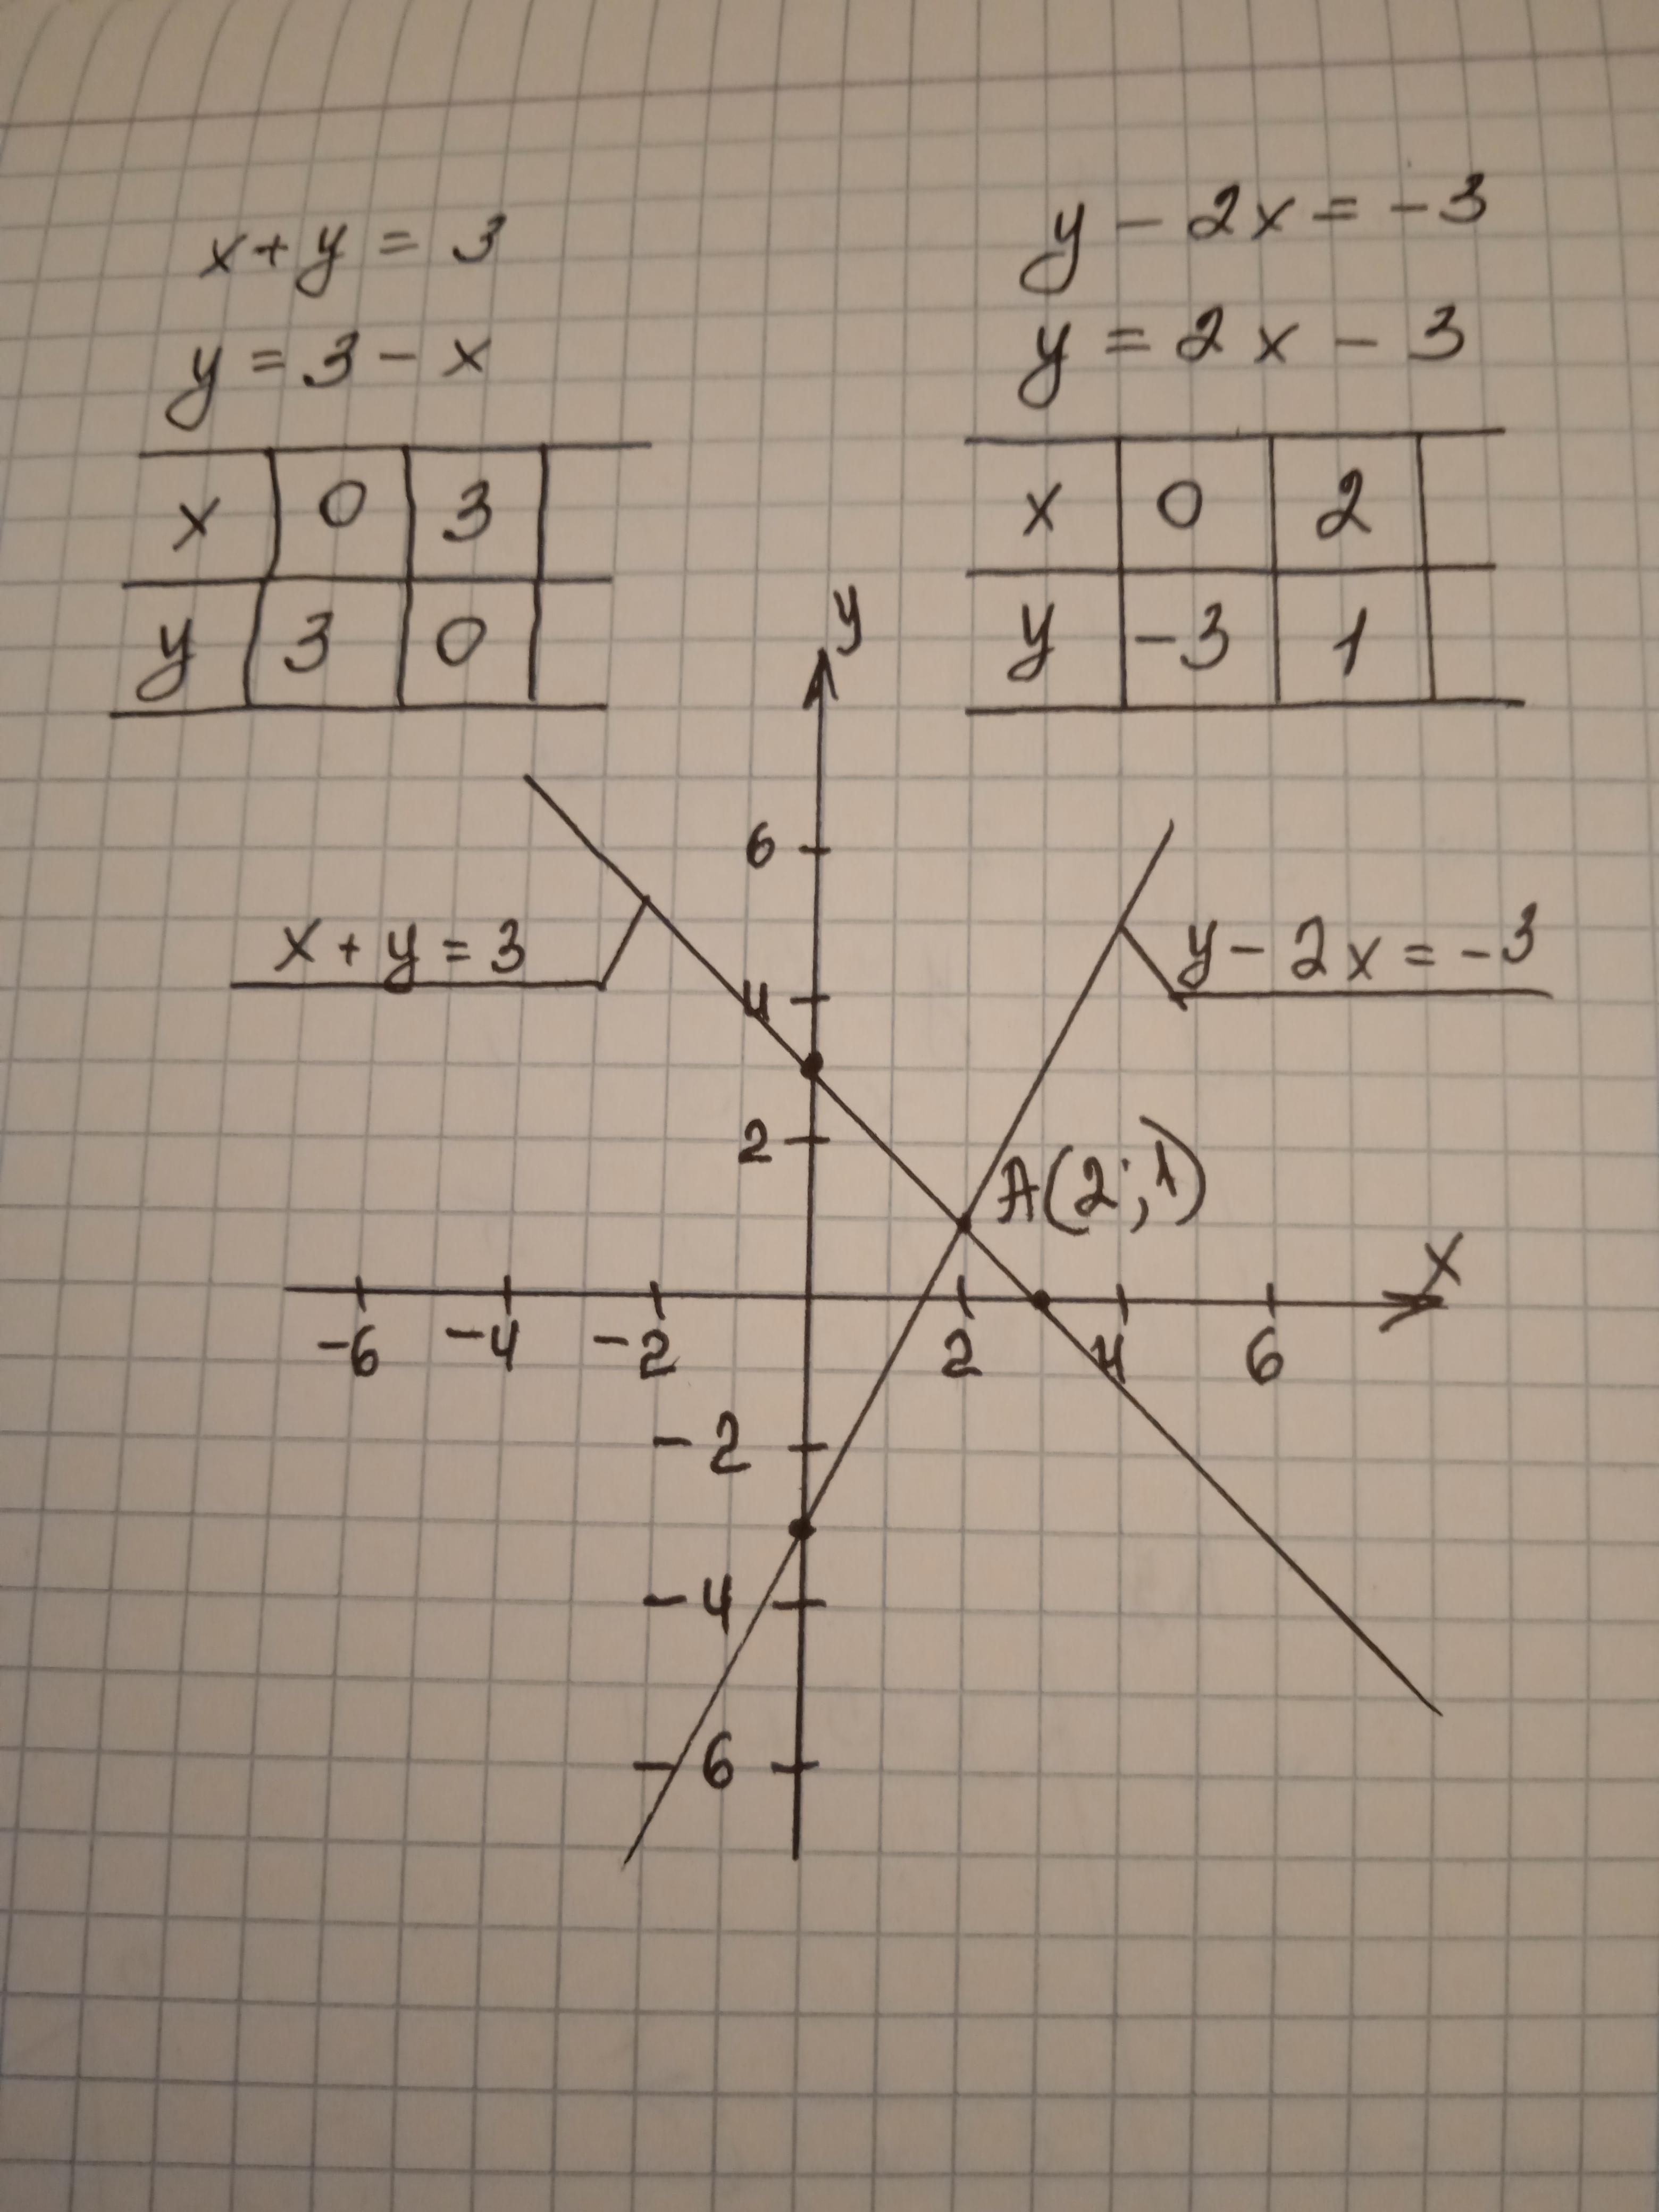 x + y = 3
y = 3 - x
x 0 3
y 3 0
y - 2x = -3
y = 2x - 3
x 0 2
y -3 1
y
6
x + y = 3
y - 2x = -3
4
2
A(2;1)
x
-6 -4 -2 2 4 6
-2
-4
-6